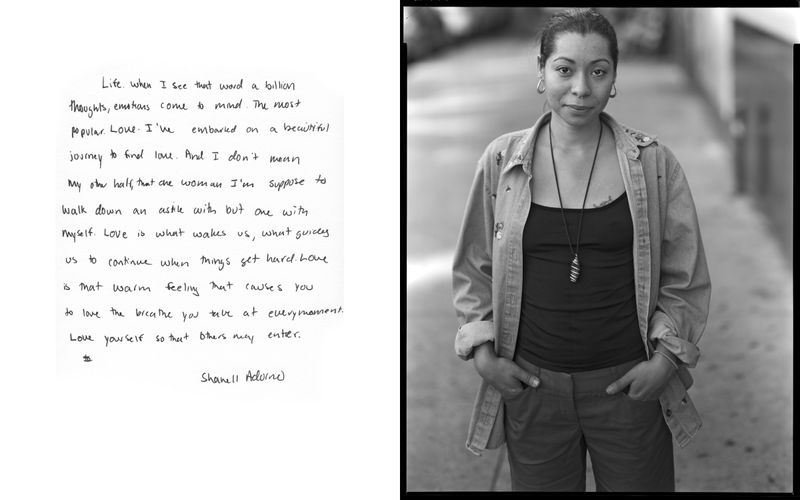 Life. When I see that word a billion
thoughts, emotions come to mind. The most
popular. Love. I've embarked on a beautiful
journey to find love. And I don't mean
my other half, that one woman I'm suppose to
walk down an astile with but one with
myself. Love is what wakes us, what guides
us to continue when things get hard. Love
is that warm feeling that causes you
to love the breathe you take at everymoment.
Love yourself so that others may enter.
Shanell Adorno